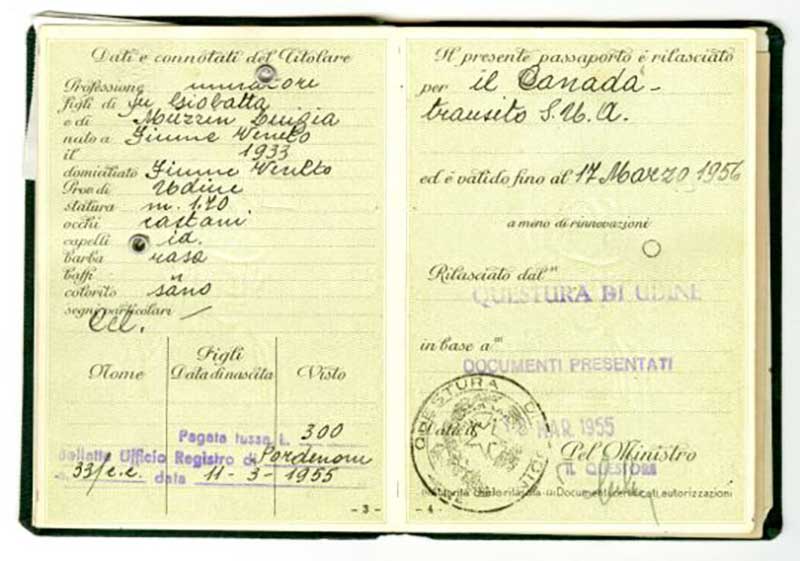 Dati e connotati del Titolare
Professione muratore
figli di fu Giobatta
e di Muzzin Luigia
nato a Fiume Veneto
il 1933
domiciliato Fiume Veneto
Prov. di Udine
statura m. 1.70
occhi castani
capelli id.
barba rasa
baffi
colorito sano
segni particolari
Figli
Nome Data di nascita Visto
Pagata tassa L. 300
Bollette Ufficio Registro di Pordenone
33/c.c. data 11-3-1955
- 3 -
Il presente passaporto è rilasciato
per il Canada -
transito S.U.A.
ed è valido fino al 17 Marzo 1956
a meno di rinnovazioni
Rilasciato dal
QUESTURA DI UDINE
in base a
DOCUMENTI PRESENTATI
QUESTURA DI
Data il MAR 1955
Pel Ministro
IL QUESTORE
autorizzazioni
- 4 -